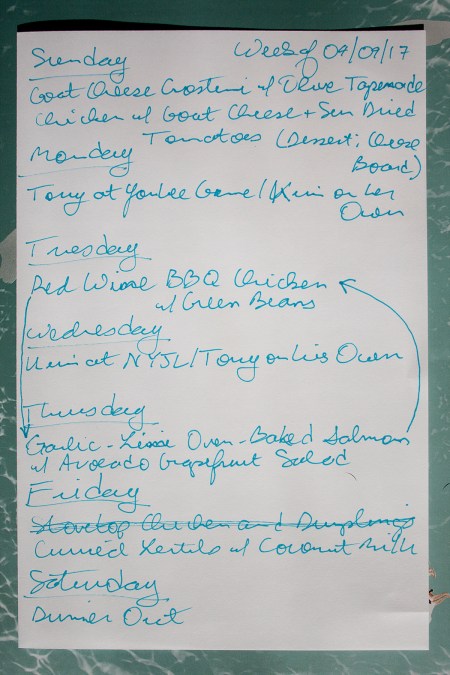 Sunday Week of 04/09/17
Goat Cheese Crostini w/ Olive Tapenade
Chicken w/ Goat Cheese + Sun Dried
Tomatoes (Dessert; Cheese
Board)
Monday
Tony at Yankee Game/Kim on her
Own
Tuesday
Red Wine BBQ Chicken
w/ Green Beans
Wednesday
Kim at NYJL/Tony on his Own
Thursday
Garlic-Lime Oven-Baked Salmon
w/ Avocado Grapefruit Salad
Friday
Stovetop Chicken and Dumplings
Curried Lentils w/ Coconut Milk
Saturday
Dinner Out